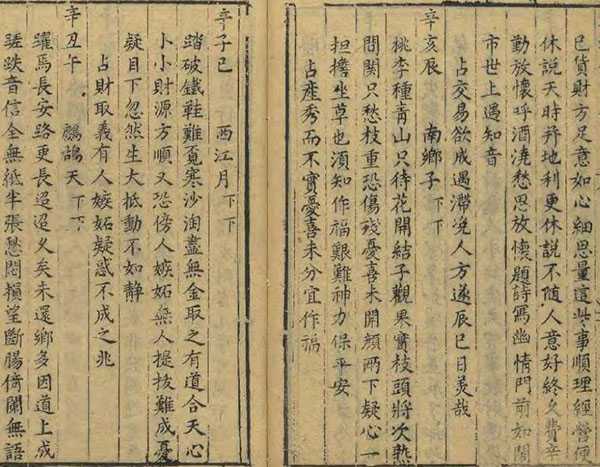 已貨財方足意如心細思量這些事順理經營便
休說天時并地利更休說不隨人意好終久費辛
勤放懷呼酒澆愁思放懷題詩寫幽情門前如鬧
市世上遇知音
占交易欲成遇滯凂人方遂辰巳日美哉
辛亥辰 南鄉子 下下
桃李種青山只待花開結子觀果實枝頭將次熟
問閑只愁枝重恐傷殘憂喜未開顏兩下疑心一
担擔坐草也須知作福艱難神力保平安
占産秀而不實憂喜未分宜作福
辛子巳 西江月 下下
踏破鐵鞋難覓寒沙淘盡無金取之有道合天心
小小財源方順又恐傍人嫉妬無人提拔難成憂
疑目下忽然生大抵動不如靜
占財取義有人嫉妬疑惑不成之兆
辛丑午 鷓鴣天 下下
躍馬長安路更長迢迢久矣未還鄉多因道上成
蹉跌音信全無紙半張愁悶損望斷腸倚闌無語